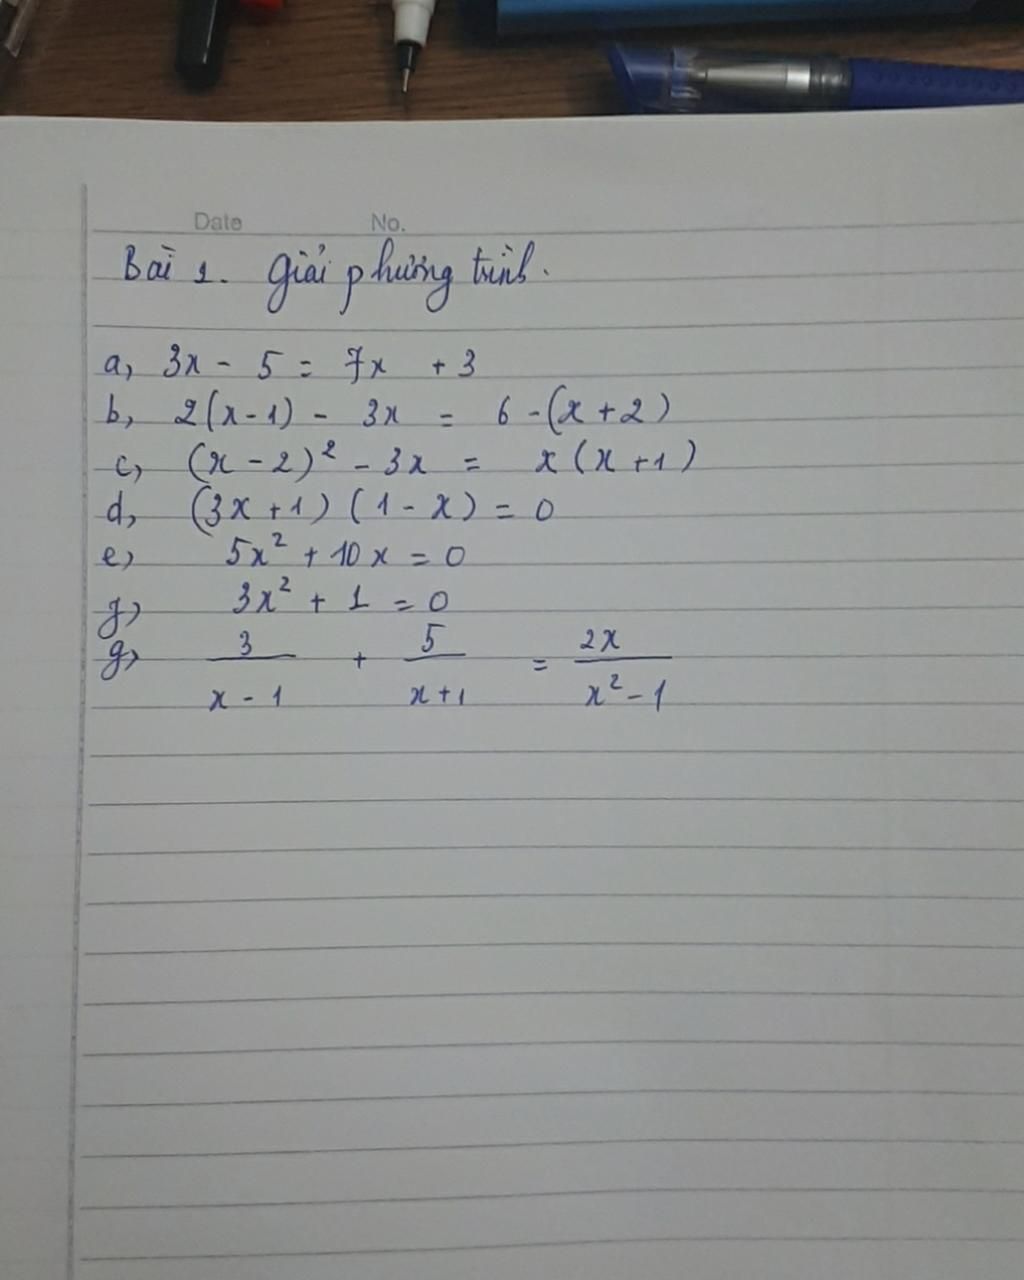 Date No.
Bài 1. Giải phương trình.
a, 3x - 5 = 7x + 3
b, 2(x-1) - 3x = 6 -(x+2)
c, (x-2)² - 3x = x(x+1)
d, (3x+1)(1-x) = 0
e, 5x² + 10x = 0
f, 3x² + 1 = 0
g, 3/(x-1) + 5/(x+1) = 2x/(x²-1)